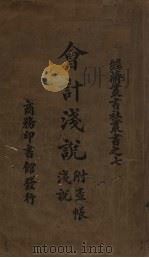 經濟叢書社叢書之七
會計淺說
附查帳淺說
商務印書館發行